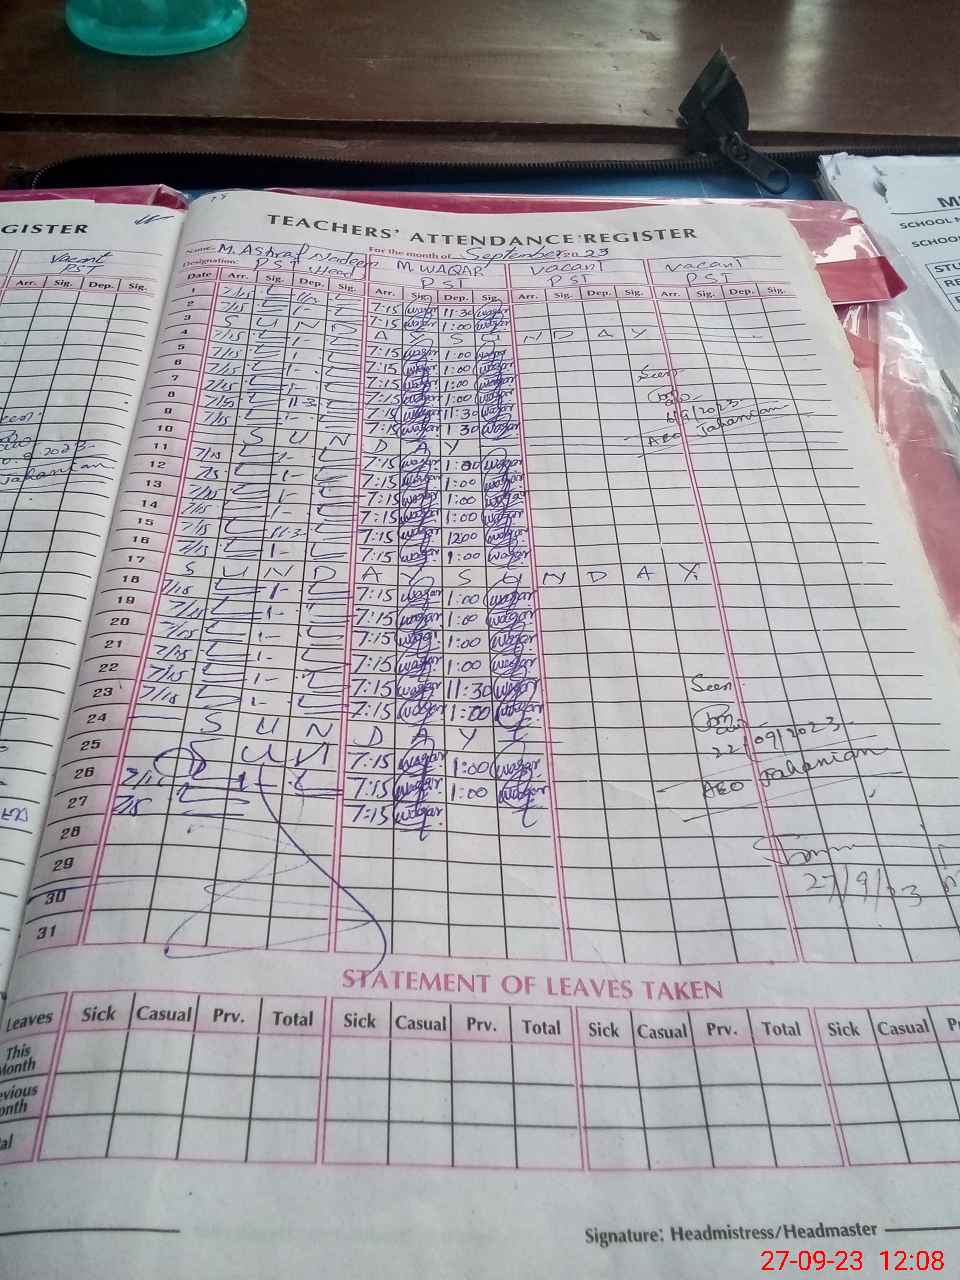 GISTER
Vacant
PST
Arr. Sig. Dep. Sig.
TEACHERS' ATTENDANCE REGISTER
Name: M. Ashraf Nadeem For the month of September 2023
Designation: PST Head M. WAQAR vacant vacant
PST PST PST
Date Arr. Sig. Dep. Sig. Arr. Sig. Dep. Sig. Arr. Sig. Dep. Sig. Arr. Sig. Dep. Sig.
1 7/15 7:15 waqar 11:30 waqar
2 7/15 1- 7:15 waqar 1:00 waqar
3 S U N D A Y S U N D A Y
4 7/15 1- 7:15 waqar 1:00 waqar
5 7/15 1- 7:15 waqar 1:00 waqar
6 7/15 1- 7:15 waqar 1:00 waqar
7 7/15 1- 7:15 waqar 1:00 waqar
8 7/15 11-3- 7:15 waqar 11:30 waqar
9 7/15 1- 7:15 waqar 1:30 waqar
10 S U N D A Y
11 7/15 1- 7:15 waqar 1:00 waqar
12 7/15 1- 7:15 waqar 1:00 waqar
13 7/15 1- 7:15 waqar 1:00 waqar
14 7/15 1- 7:15 waqar 1:00 waqar
15 7/15 11-3- 7:15 waqar 1200 waqar
16 7/15 1- 7:15 waqar 1:00 waqar
17 S U N D A Y S U N D A Y
18 7/15 1- 7:15 waqar 1:00 waqar
19 7/15 1- 7:15 waqar 1:00 waqar
20 7/15 1- 7:15 waqar 1:00 waqar
21 7/15 1- 7:15 waqar 1:00 waqar
22 7/15 1- 7:15 waqar 11:30 waqar
23 7/15 1- 7:15 waqar 1:00 waqar
24 S U N D A Y
25 7:15 waqar 1:00 waqar
26 7:15 waqar 1:00 waqar
27 7/15 7:15 waqar
28
29
30
31
Seen
6/9/2023
AEO Jahanian
Seen
22/09/2023
AEO Jahanian
27/9/23
Jahanian
STATEMENT OF LEAVES TAKEN
Leaves Sick Casual Prv. Total Sick Casual Prv. Total Sick Casual Prv. Total Sick Casual
This
Month
Signature: Headmistress/Headmaster
SCHOOL N
SCHOO
STU
RE
27-09-23 12:08